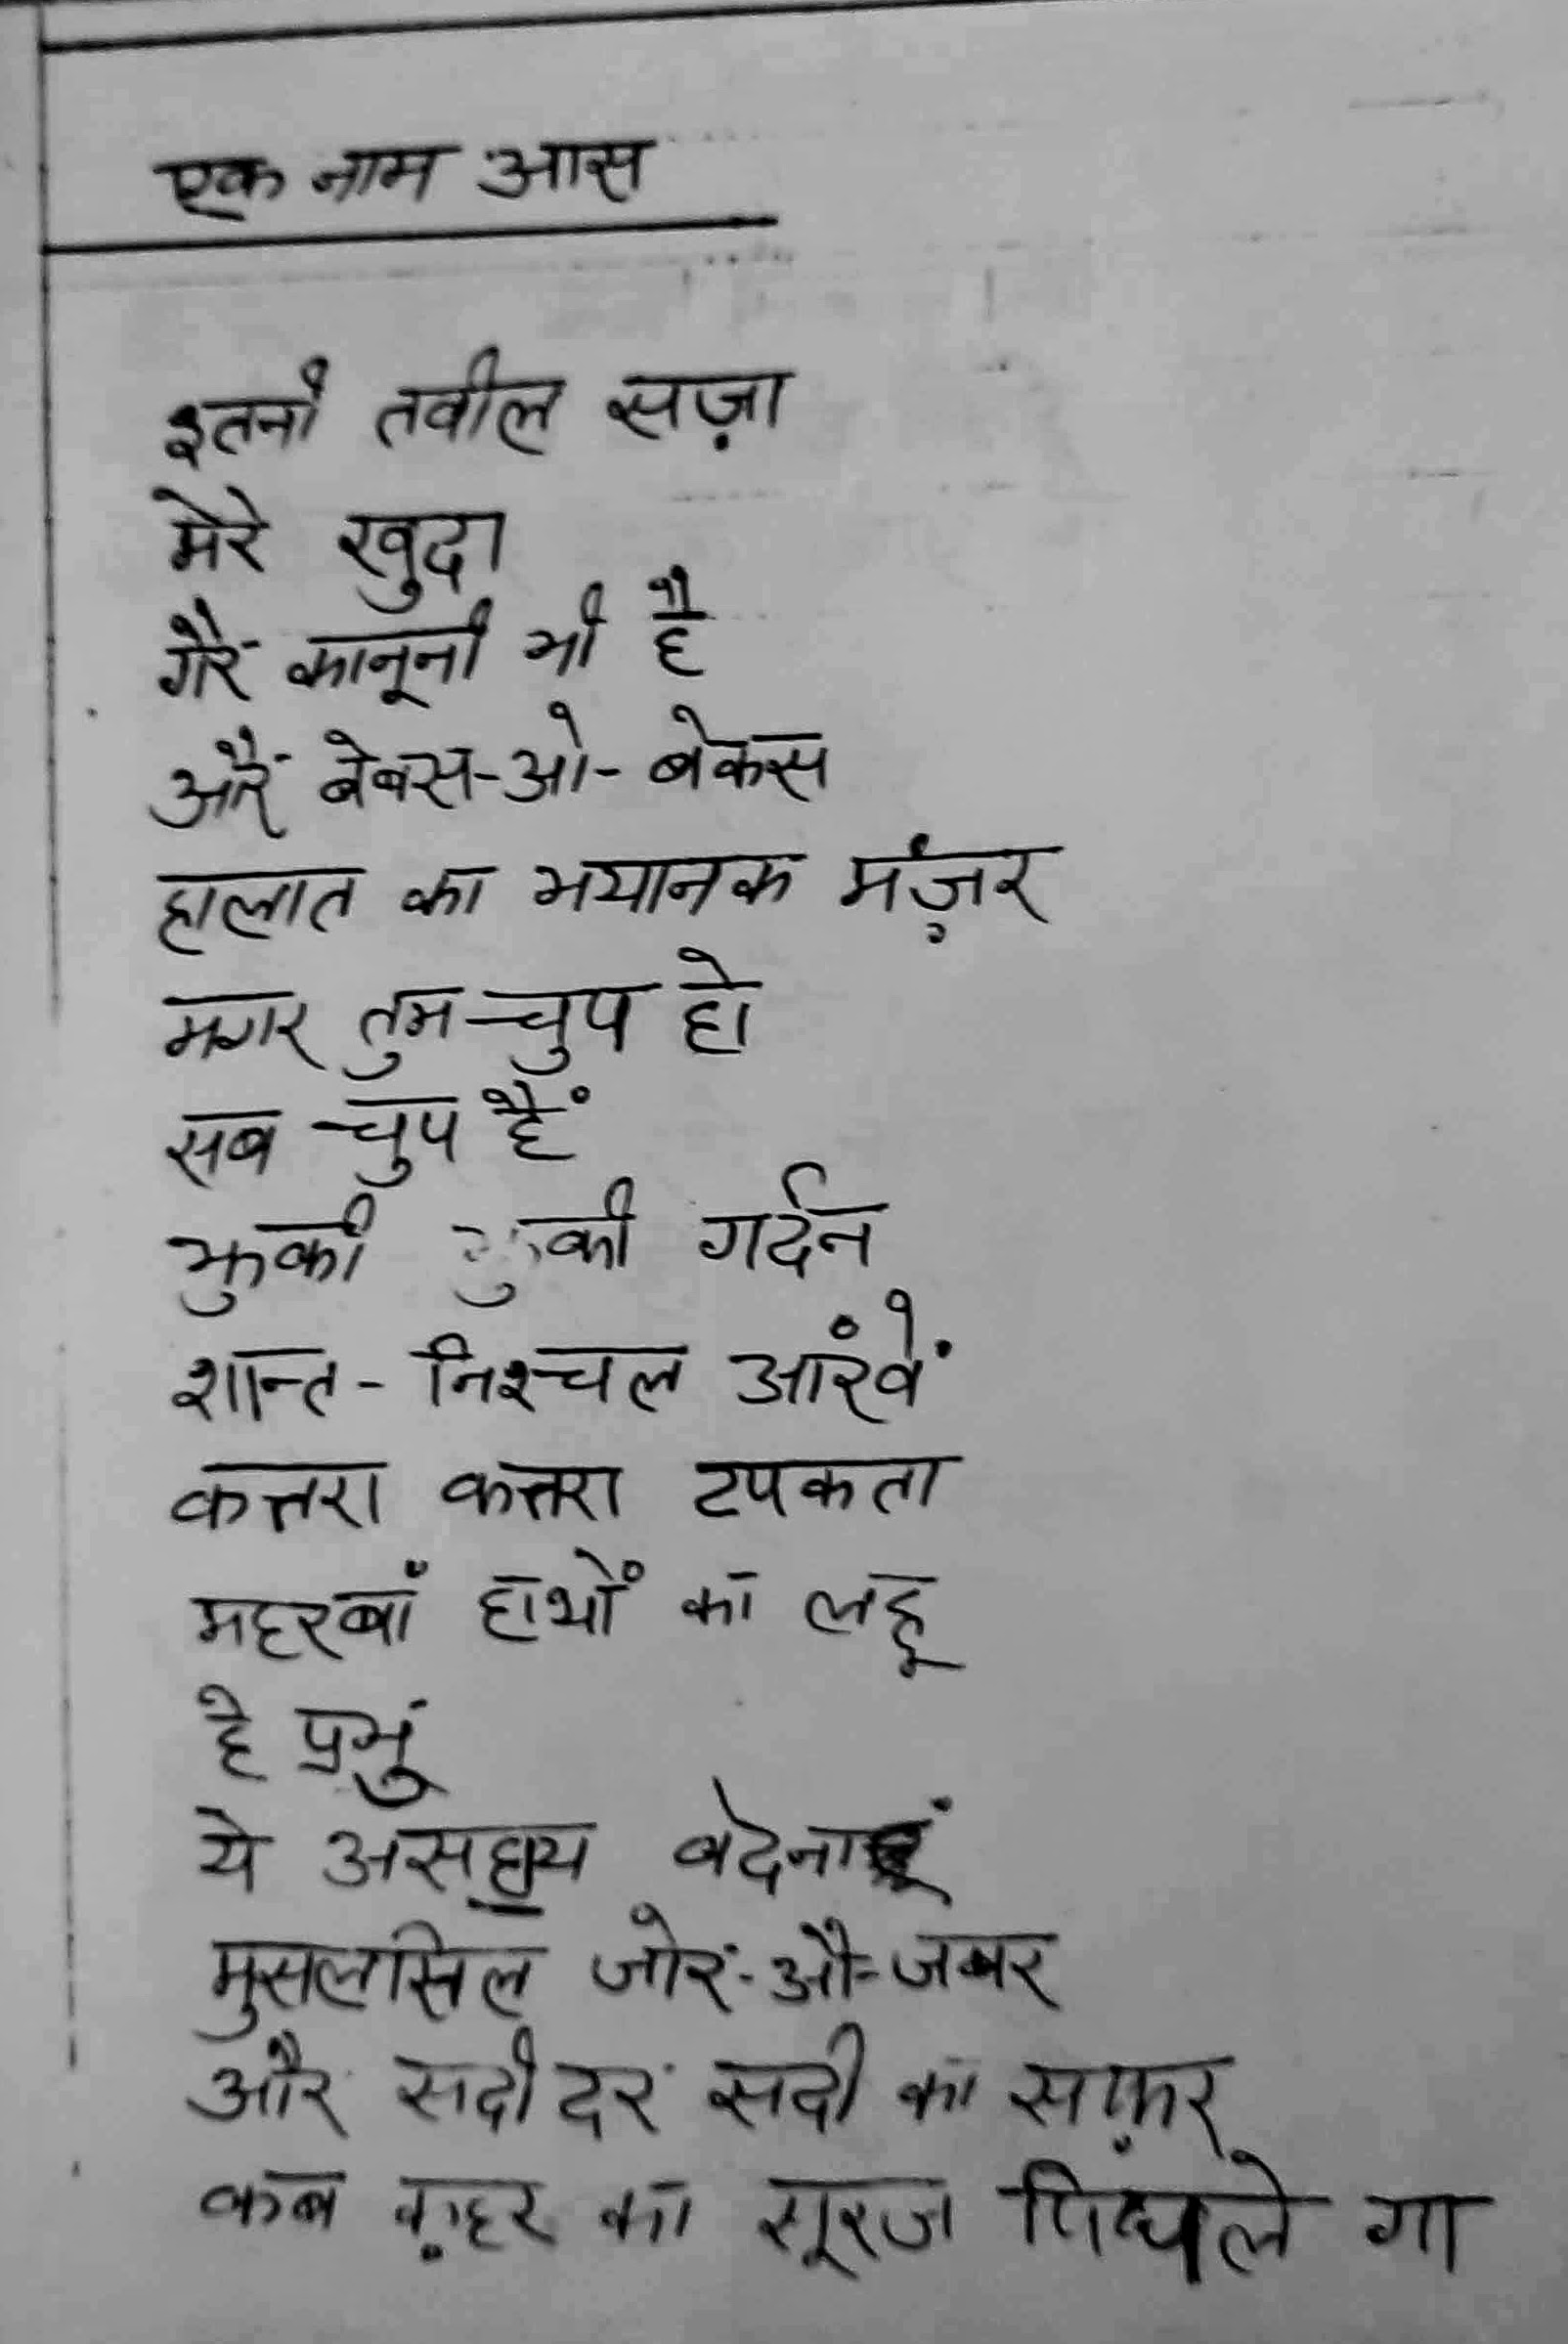 एक नाम आस
इतनी तवील सज़ा
मेरे खुदा
गैर कानूनी भी है
और बेबस-ओ-बेकस
हालात का भयानक मंज़र
मगर तुम चुप हो
सब चुप हैं
झुकी झुकी गर्दन
शान्त-निश्चल आंखें
कत्तरा कत्तरा टपकता
महरबां हाथों का लहू
हे प्रभु
ये असह्य
मुसलसिल जोर-औ-जबर
और सदी दर सदी का सफ़र
कब क़हर का सूरज पिघले गा